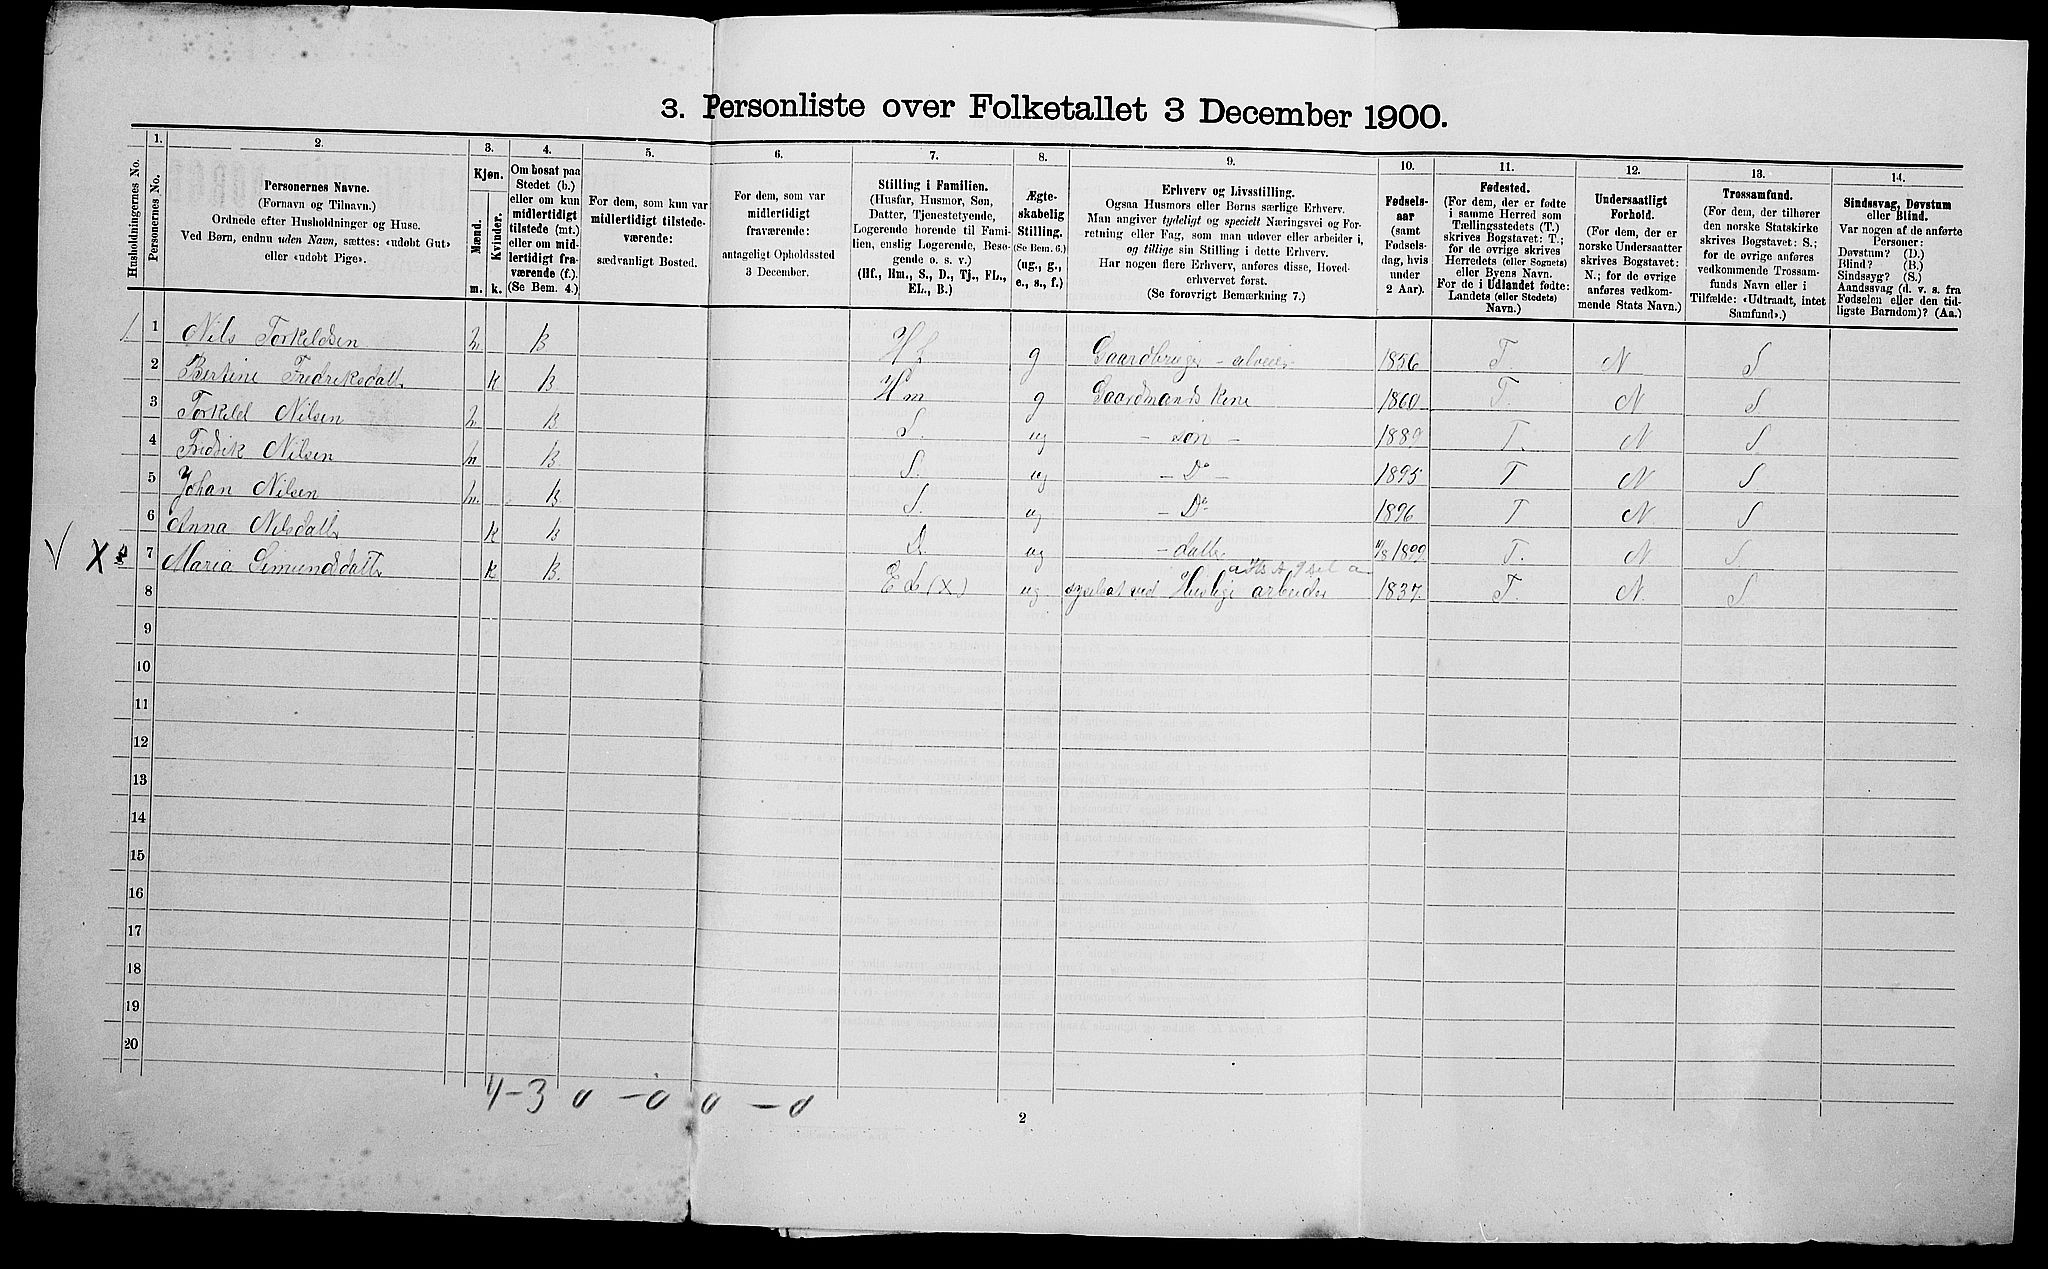 3. Personliste over Folketallet 3 December 1900.
Husholdningernes No.
1.
Personernes No.
2.
Personernes Navne.
(Fornavn og Tilnavn.)
Ordnede efter Husholdninger og Huse.
Ved Børn, endnu uden Navn, sættes: «udøbt Gut»
eller «udøbt Pige».
3.
Kjøn.
Mænd.
Kvinder.
m.
k.
4.
Om bosat paa
Stedet (b.)
eller om kun
midlertidigt
tilstede (mt.)
eller om mid-
lertidigt fra-
værende (f.).
(Se Bem. 4.)
5.
For dem, som kun var
midlertidigt tilstede-
værende:
sædvanligt Bosted.
6.
For dem, som var
midlertidigt
fraværende:
antageligt Opholdssted
3 December.
7.
Stilling i Familien.
(Husfar, Husmor, Søn,
Datter, Tjenestetyende,
Logerende hørende til Fami-
lien, enslig Logerende, Besø-
gende o. s. v.)
(Hf., Hm., S., D., Tj., FL.,
EL., B.)
8.
Ægte-
skabelig
Stilling.
(Se Bem. 6.)
(ug., g.,
e., s., f.)
9.
Erhverv og Livsstilling.
Ogsaa Husmors eller Børns særlige Erhverv.
Man angiver tydeligt og specielt Næringsvei og For-
retning eller Fag, som man udøver eller arbeider i,
og tillige sin Stilling i dette Erhverv.
Har nogen flere Erhverv, anføres disse, Hoved-
erhvervet først.
(Se forøvrigt Bemærkning 7.)
10.
Fødsels-
aar
(samt
Fødsels-
dag, hvis
under
2 Aar).
11.
Fødested.
(For dem, der er fødte
i samme Herred som
Tællingsstedets (T.)
skrives Bogstavet: T.;
for de øvrige skrives
Herredets (eller Sognets)
eller Byens Navn.
For de i Udlandet fødte:
Landets (eller Stedets)
Navn.)
12.
Undersaatligt
Forhold.
(For dem, der er
norske Undersaatter
skrives Bogstavet:
N.; for de øvrige
anføres vedkom-
mende Stats Navn.)
13.
Trossamfund.
(For dem, der tilhører
den norske Statskirke
skrives Bogstavet: S.;
for de øvrige anføres
vedkommende Trossam-
funds Navn eller i
Tilfælde: «Udtraadt, intet
Samfund».)
14.
Sindssvag, Døvstum
eller Blind.
Var nogen af de anførte
Personer:
Døvstum? (D.)
Blind? (B.)
Sindssyg? (S.)
Aandssvag (d. v. s. fra
Fødselen eller den tid-
ligste Barndom)? (Aa.)
1. 1 Nils Torkeldsen m B Hf g Gaardbruger - selveier 1856 T N S
2 Bertine Fredriksdatter k B. Hm g Gaardmands Kone 1860 T. N S
3 Torkeld Nilsen m B S. ug - søn - 1889 T. N S
4 Fredrik Nilsen m B. S. ug - Do - 1895 T N S
5 Johan Nilsen m. B S. ug - Do 1896 T N. S
6 Anna Nilsdatter k B D. ug - datter 11/8 1899 T. N S
V X 7 Maria Simundsdatter k B. EL (X) ug. sysselsat med Huslige arbeider 1837. T. N. S
8
9
10
11
12
13
14
15
16
17
18
19
20
4-3 0 -0 0 -0
2